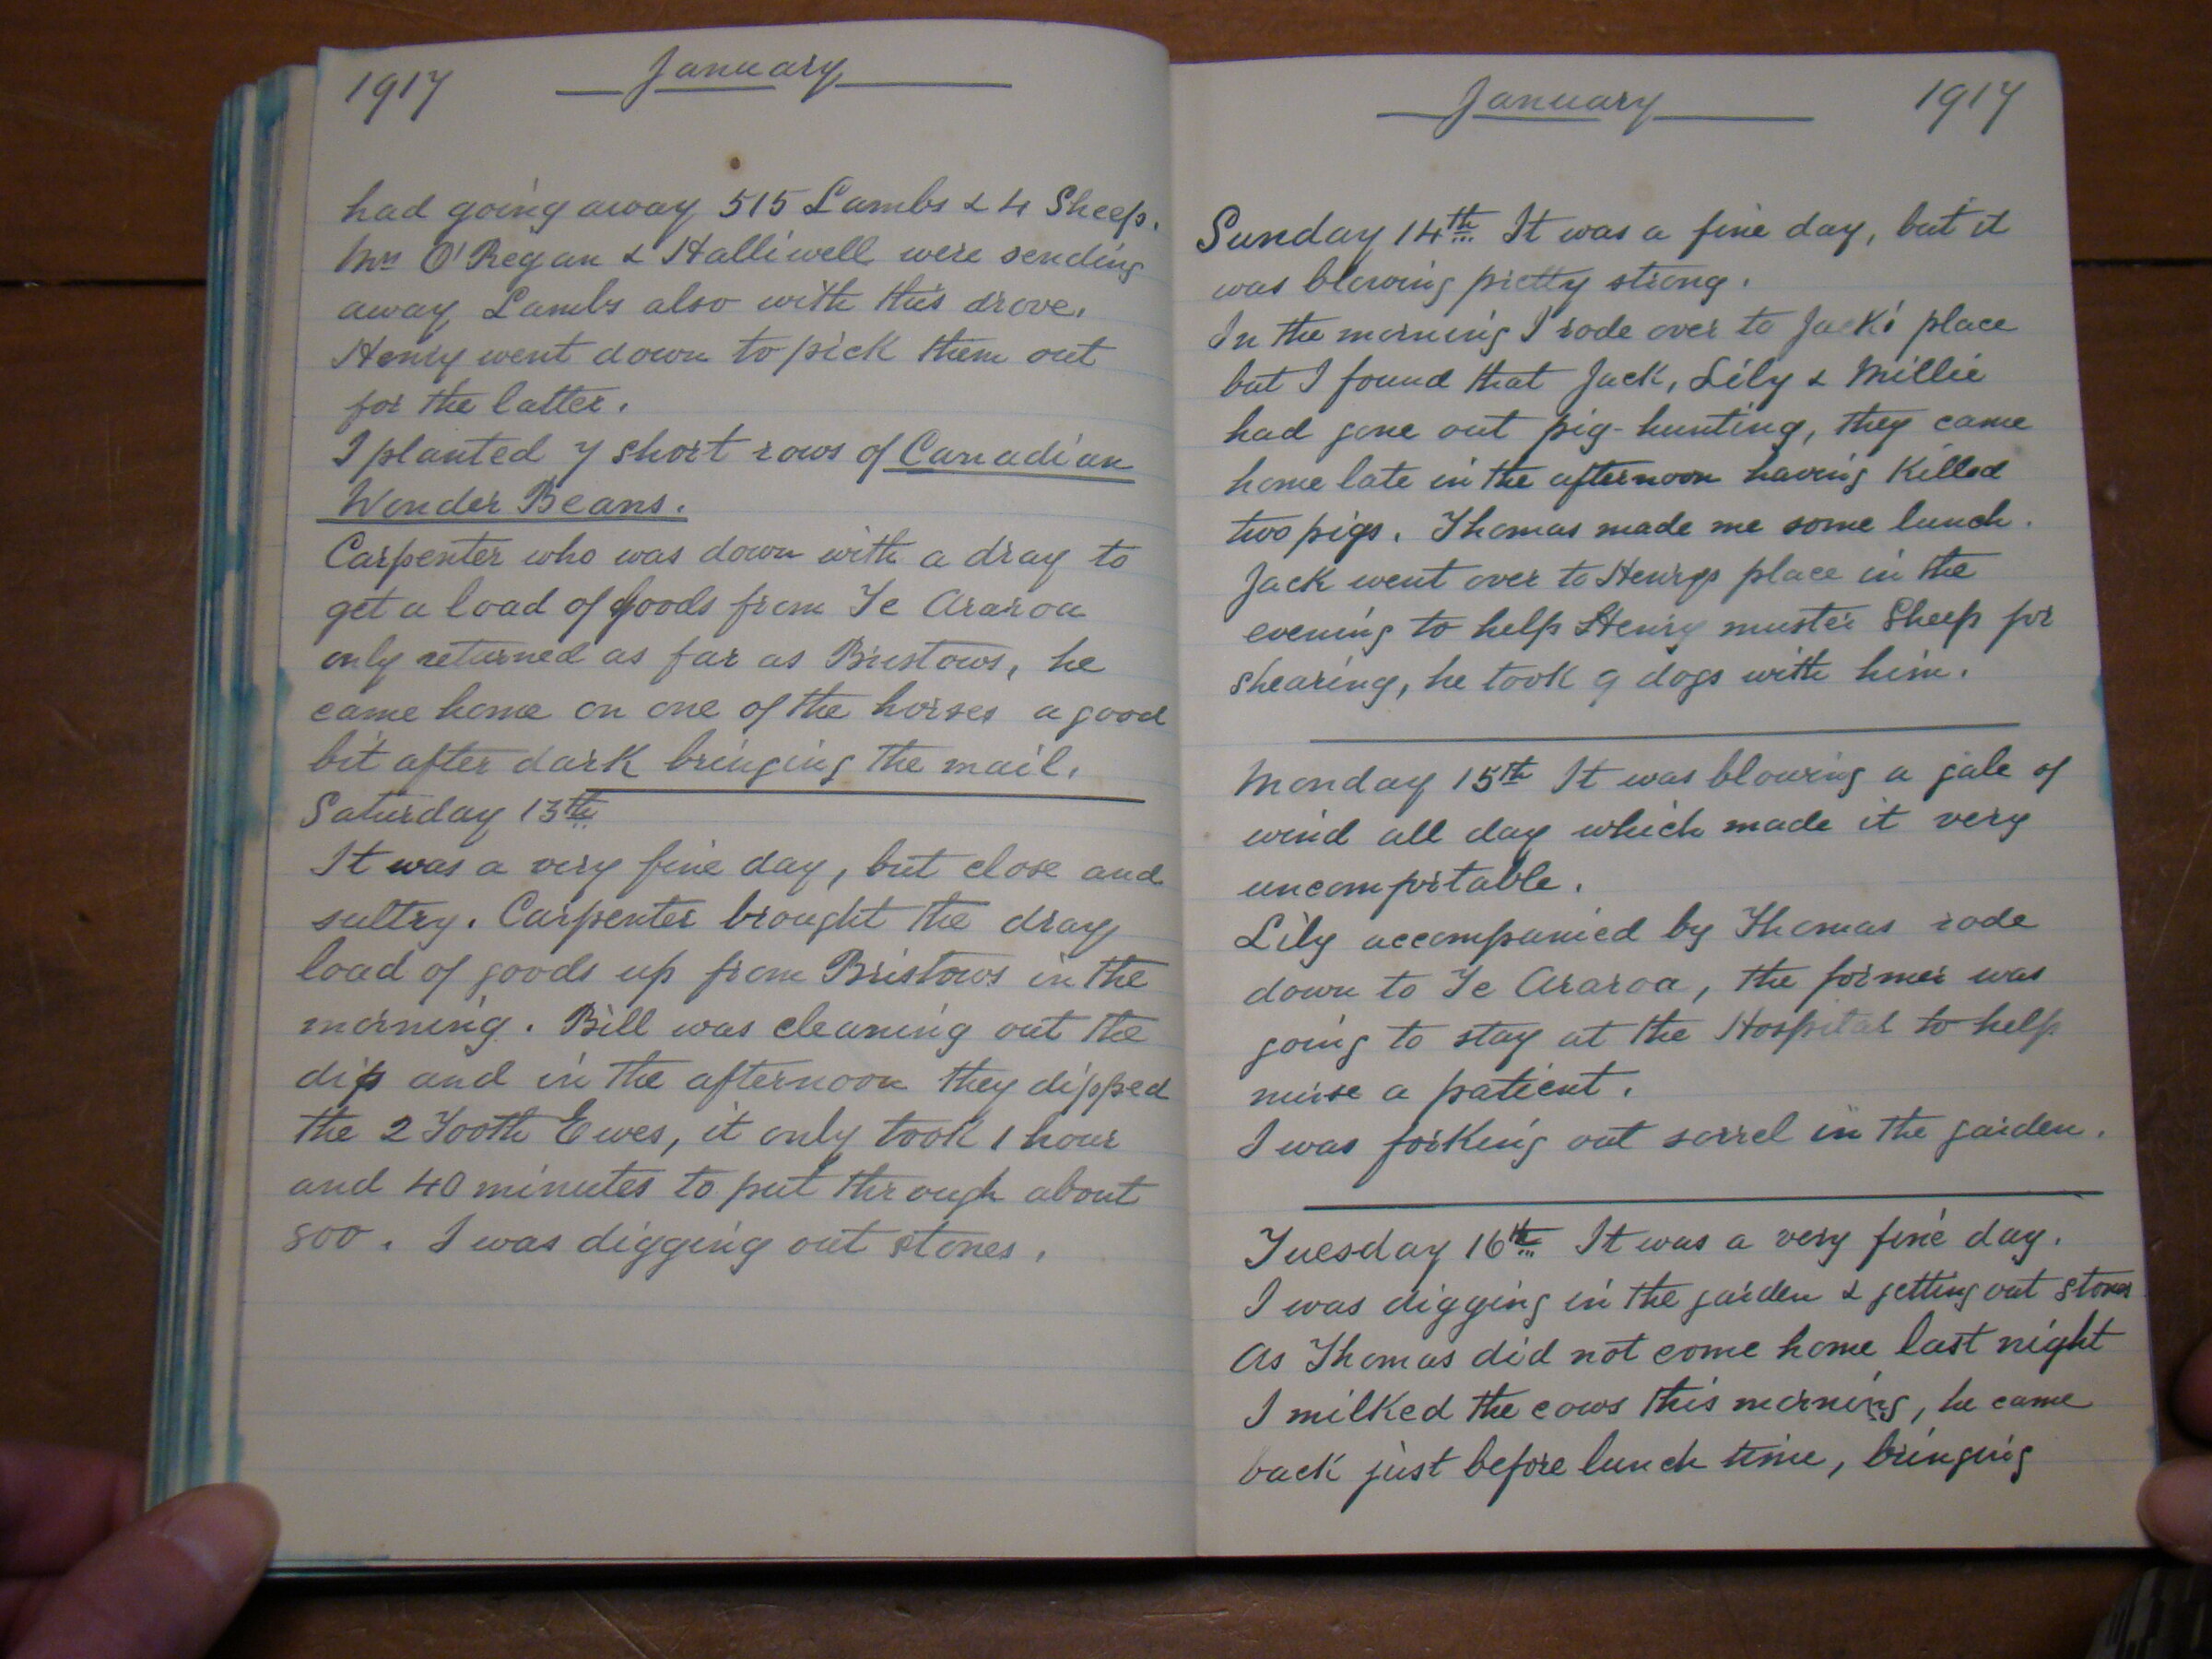 1917 January
had going away 515 Lambs & 4 Sheep.
Mrs O'Regan & Halliwell were sending
away Lambs also with this drove.
Henry went down to pick them out
for the latter.
I planted 7 short rows of Canadian
Wonder Beans.
Carpenter who was down with a dray to
get a load of goods from Te Araroa
only returned as far as Bristows, he
came home on one of the horses a good
bit after dark bringing the mail.
Saturday 13th
It was a very fine day, but close and
sultry. Carpenter brought the dray
load of goods up from Bristows in the
morning. Bill was cleaning out the
dip and in the afternoon they dipped
the 2 Tooth Ewes, it only took 1 hour
and 40 minutes to put through about
800. I was digging out stones.
January 1917
Sunday 14th It was a fine day, but it
was blowing pretty strong.
In the morning I rode over to Jack's place
but I found that Jack, Lily & Millie
had gone out pig-hunting, they came
home late in the afternoon having killed
two pigs. Thomas made me some lunch.
Jack went over to Henrys place in the
evening to help Henry muster Sheep for
shearing, he took 9 dogs with him.
Monday 15th It was blowing a gale of
wind all day which made it very
uncomfortable.
Lily accompanied by Thomas rode
down to Te Araroa, the former was
going to stay at the Hospital to help
nurse a patient.
I was forking out sorrel in the garden.
Tuesday 16th It was a very fine day.
I was digging in the garden & getting out stones
As Thomas did not come home last night
I milked the cows this morning, he came
back just before lunch time, bringing